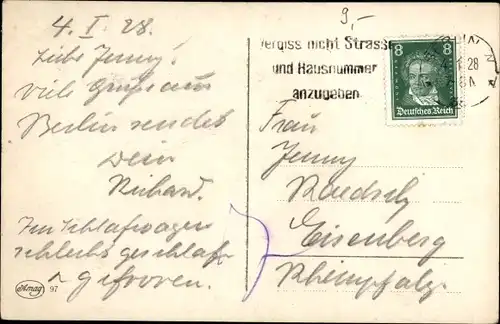 4. I. 28.
Liebe Jenny!
Viele Grüße aus
Berlin sendet
Dein
Richard.
Im Schlafwagen
schlecht geschlafen
gefroren.
Amag 97
9,-
Vergiss nicht Strasse
und Hausnummer
anzugeben
28
8 8
Deutsches Reich
Frau
Jenny
Eisenberg
Rheinpfalz.